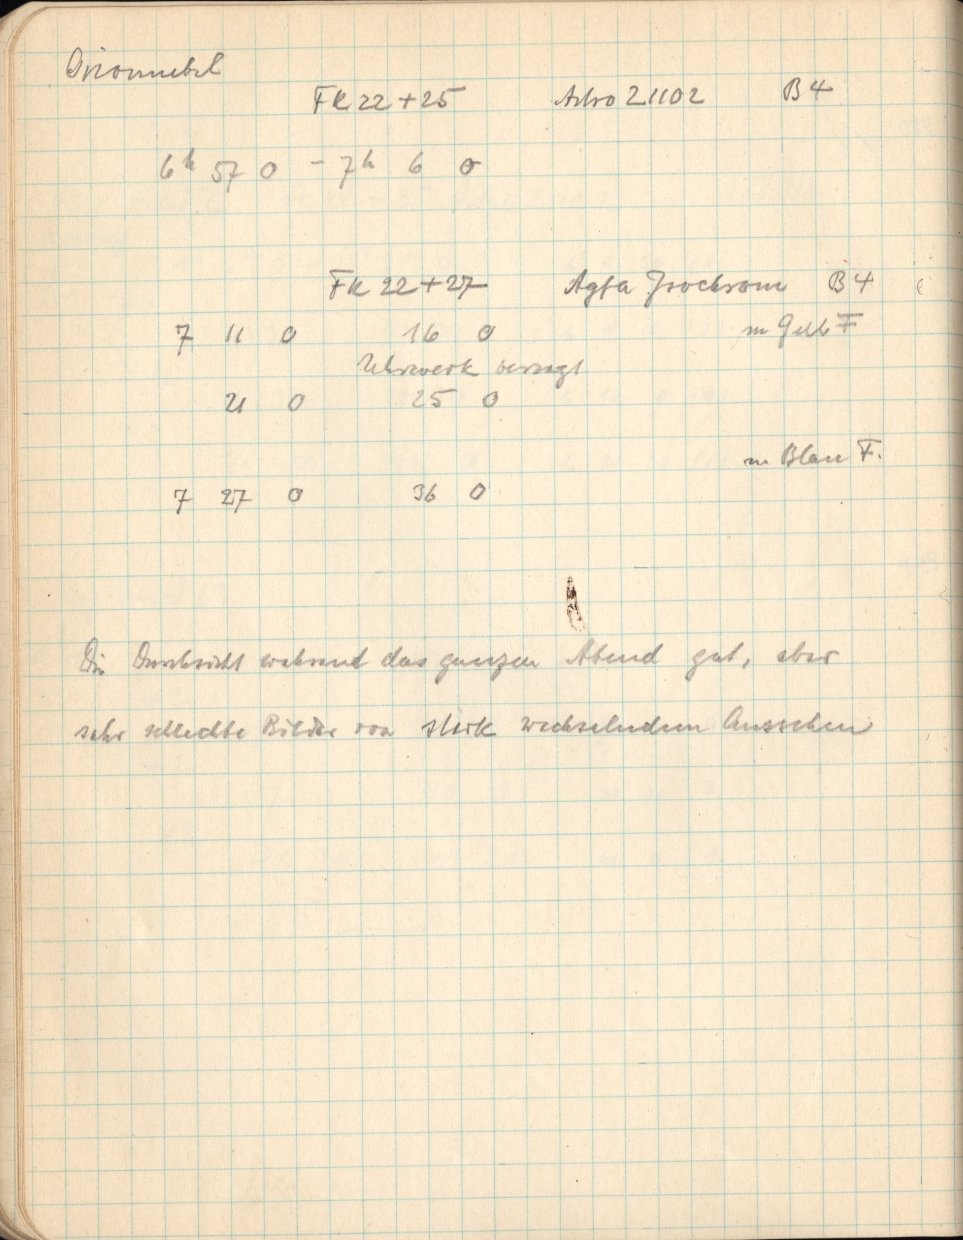 Orionnebel
FK 22+25 Astro 21102 B4
6h 57 0 - 7h 6 0
FK 22+27 Agfa Isochrom B4
7 11 0 16 0 m Gelb F
Uhrwerk versagt
21 0 25 0
m Blau F.
7 27 0 36 0
Die Durchsicht während das ganzen Abend gut, aber
sehr schlechte Bilder von stark wechselndem Aussehen